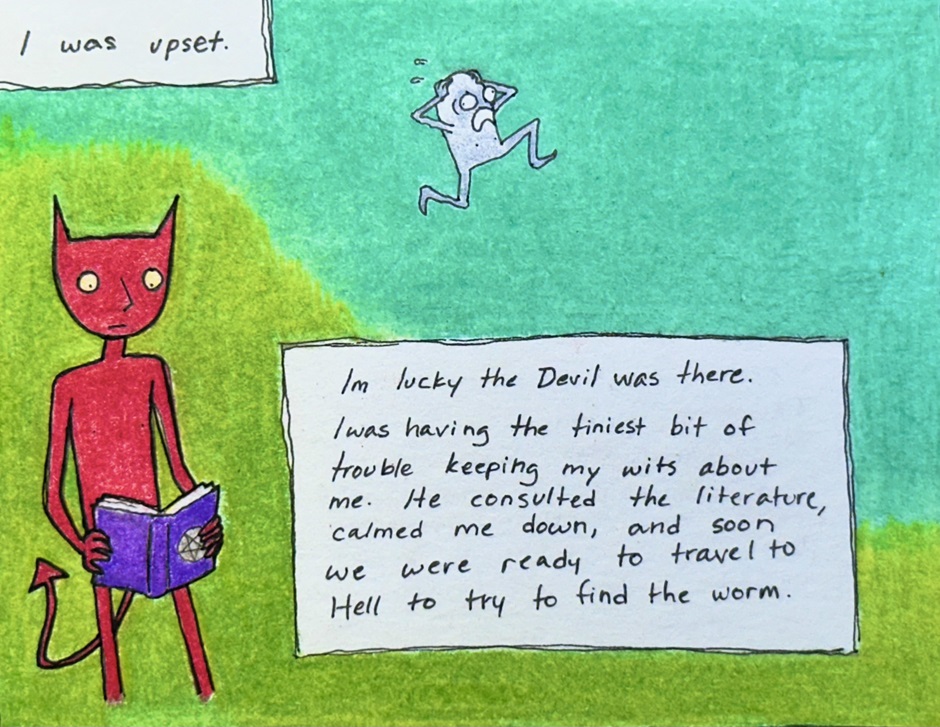 I was upset.
Im lucky the Devil was there.
I was having the tiniest bit of
trouble keeping my wits about
me. He consulted the literature,
calmed me down, and soon
we were ready to travel to
Hell to try to find the worm.